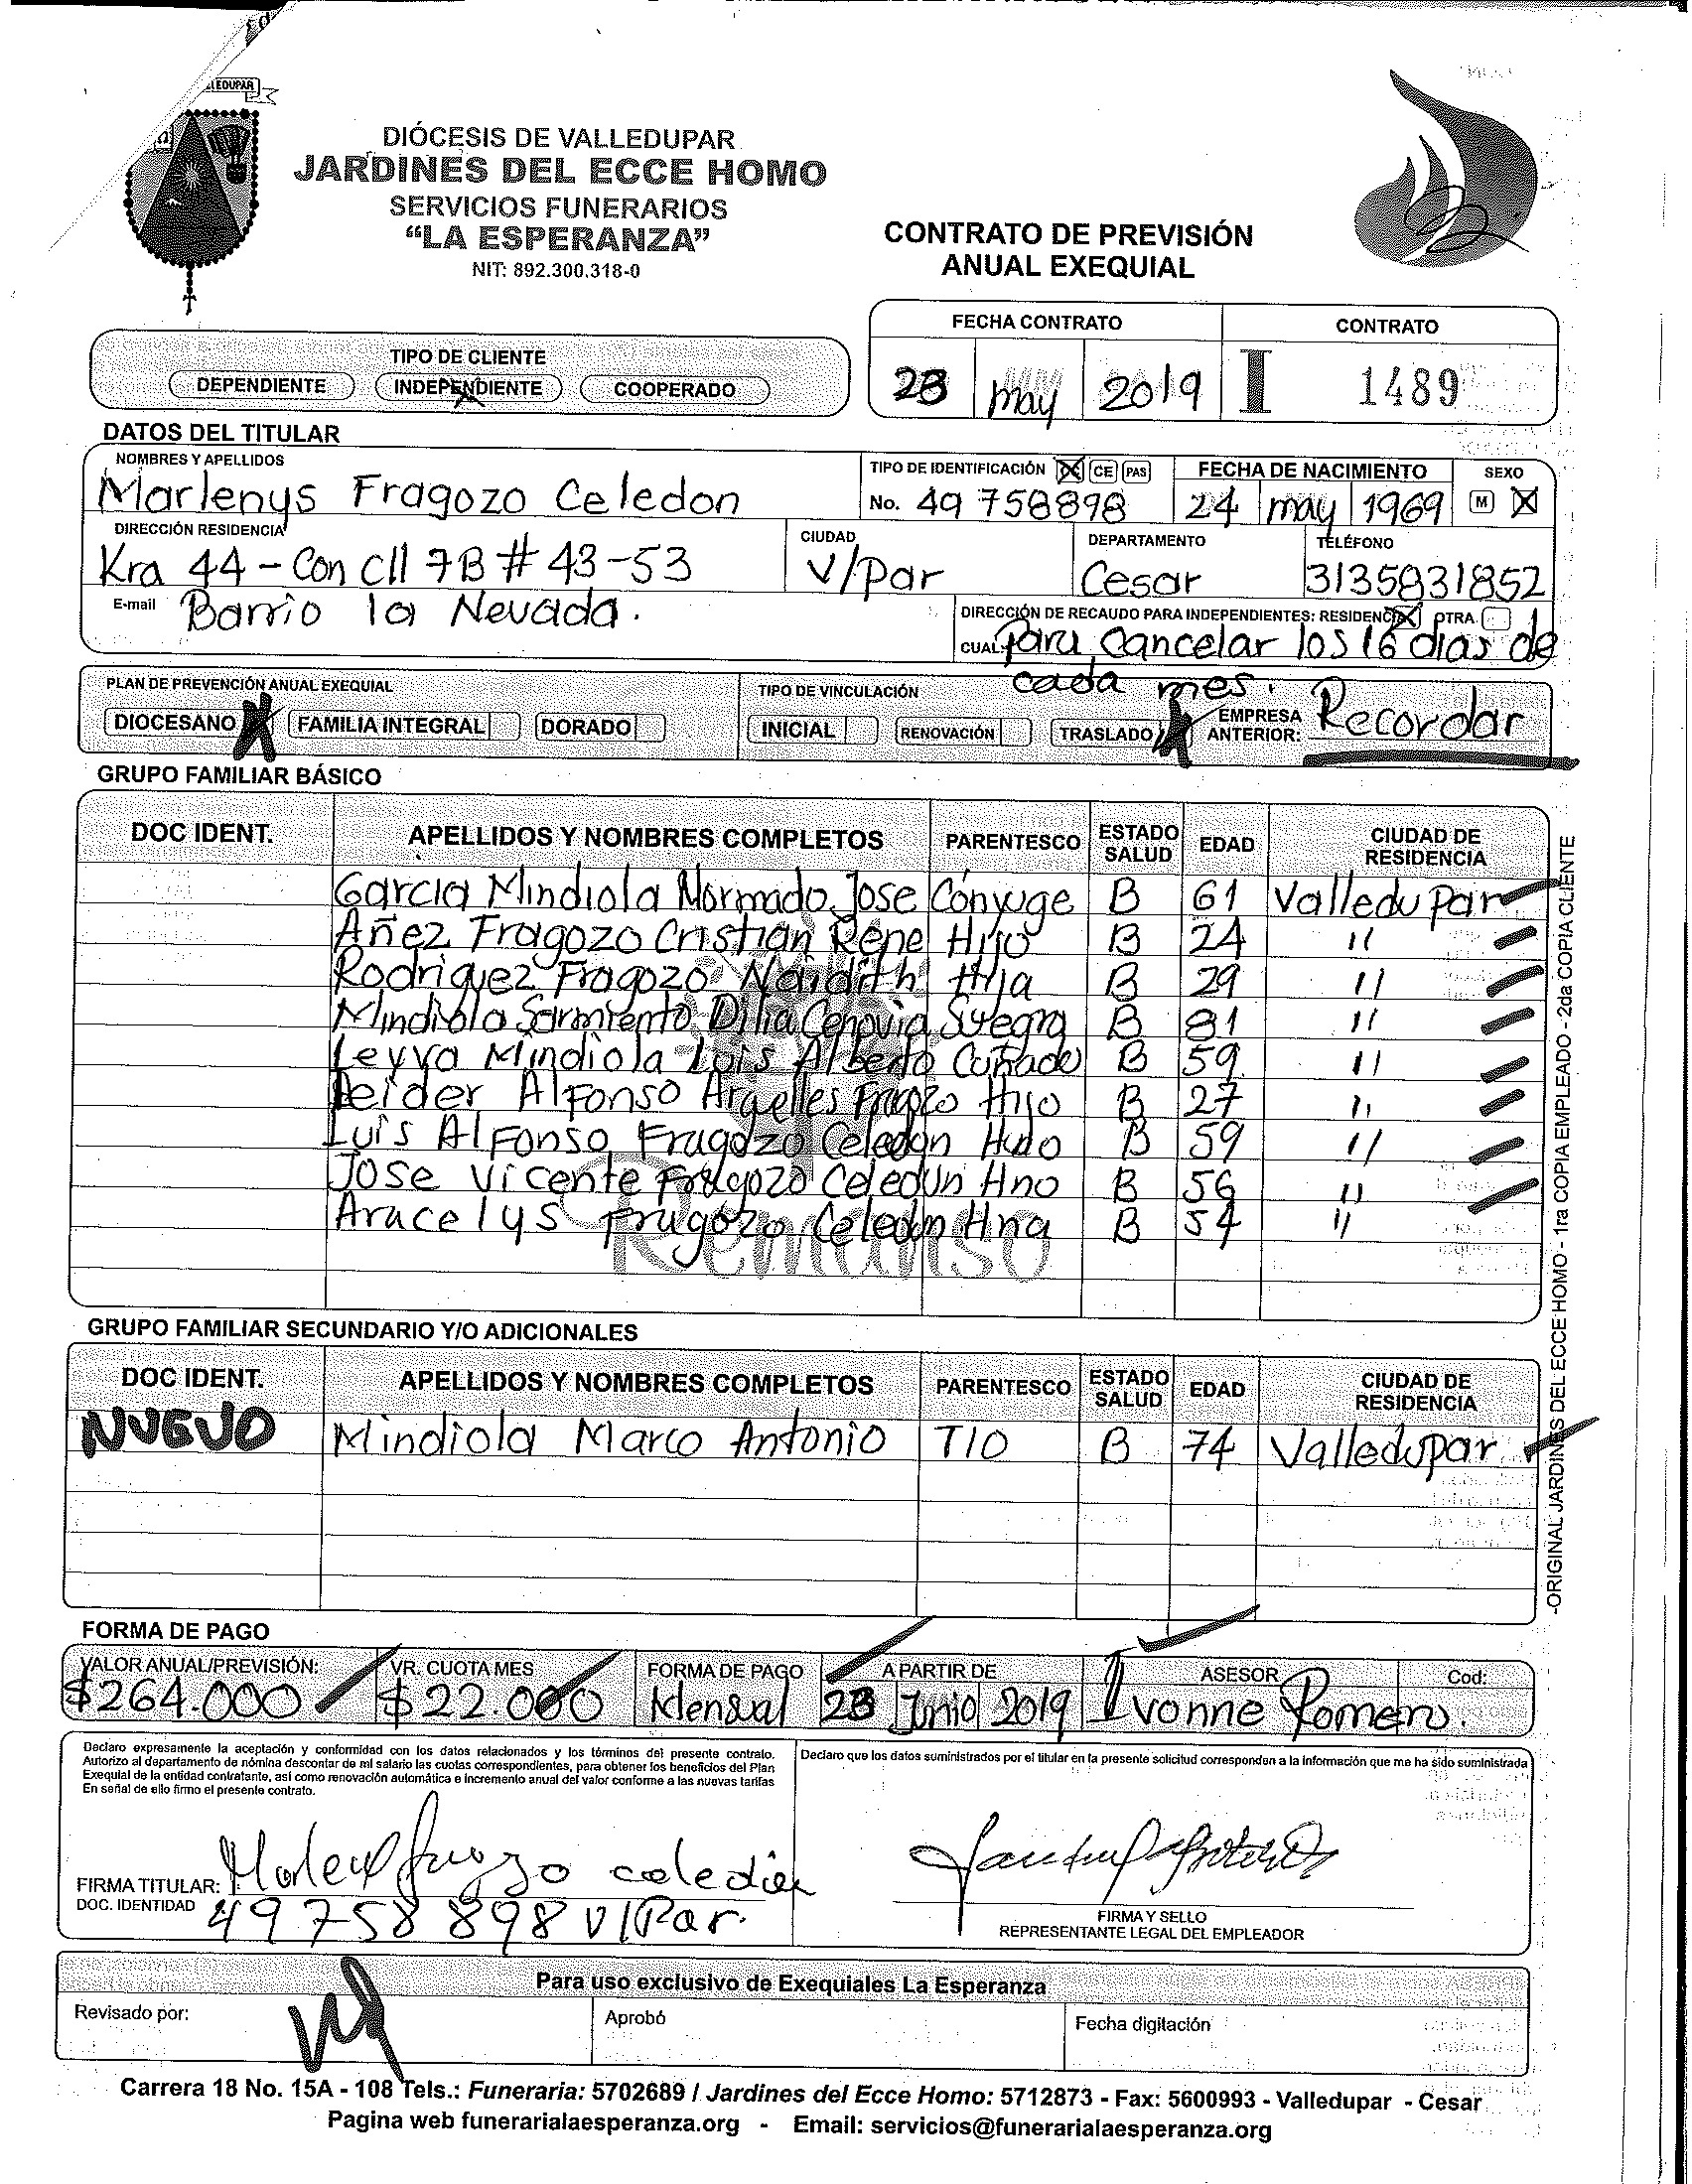 LEDUPAR
DIÓCESIS DE VALLEDUPAR
JARDINES DEL ECCE HOMO
SERVICIOS FUNERARIOS
"LA ESPERANZA"
NIT: 892.300.318-0
CONTRATO DE PREVISIÓN
ANUAL EXEQUIAL
FECHA CONTRATO CONTRATO
28 may 2019 I 1489
TIPO DE CLIENTE
DEPENDIENTE INDEPENDIENTE COOPERADO
DATOS DEL TITULAR
NOMBRES Y APELLIDOS TIPO DE IDENTIFICACIÓN CE PAS FECHA DE NACIMIENTO SEXO
Marlenys Fragozo Celedon No. 49 758898 24 may 1969 M X
DIRECCIÓN RESIDENCIA CIUDAD DEPARTAMENTO TELÉFONO
Kra 44 - Con Cll 7B # 43-53 V/Par Cesar 3135831852
E-mail Barrio la Nevada. DIRECCIÓN DE RECAUDO PARA INDEPENDIENTES: RESIDENCIA X OTRA
CUAL: Para cancelar los 16 dias de
cada mes.
PLAN DE PREVENCIÓN ANUAL EXEQUIAL TIPO DE VINCULACIÓN
DIOCESANO X FAMILIA INTEGRAL DORADO INICIAL RENOVACIÓN TRASLADO X EMPRESA ANTERIOR: Recordar
GRUPO FAMILIAR BÁSICO
DOC IDENT. APELLIDOS Y NOMBRES COMPLETOS PARENTESCO ESTADO SALUD EDAD CIUDAD DE RESIDENCIA
Garcia Mindiola Normado Jose Cónyuge B 61 Valledupar
Añez Fragozo Cristian Rene Hijo B 24 "
Rodriguez Fragozo Naidith Hija B 29 "
Mindiola Sarmiento Dilia Cenovia Suegra B 81 "
Leyva Mindiola Luis Alberto Cuñado B 59 "
Deider Alfonso Argelles Fragozo Hijo B 27 "
Luis Alfonso Fragozo Celedon B 59 "
Jose Vicente Fragozo Celedon Hno B 56 "
Aracelys Fragozo Celedon Hna B 54 "
Remanso
GRUPO FAMILIAR SECUNDARIO Y/O ADICIONALES
DOC IDENT. APELLIDOS Y NOMBRES COMPLETOS PARENTESCO ESTADO SALUD EDAD CIUDAD DE RESIDENCIA
NUEVO Mindiola Marco Antonio TIO B 74 Valledupar
-ORIGINAL JARDINES DEL ECCE HOMO - 1ra COPIA EMPLEADO - 2da COPIA CLIENTE
FORMA DE PAGO
VALOR ANUAL/PREVISIÓN: VR. CUOTA MES FORMA DE PAGO A PARTIR DE ASESOR Cod:
$264.000 $22.000 Mensual 28 Junio 2019 Ivonne Romero.
Declaro expresamente la aceptación y conformidad con los datos relacionados y los términos del presente contrato.
Autorizo al departamento de nómina descontar de mi salario las cuotas correspondientes, para obtener los beneficios del Plan
Exequial de la entidad contratante, así como renovación automática e incremento anual del valor conforme a las nuevas tarifas
En señal de ello firmo el presente contrato.
Declaro que los datos suministrados por el titular en la presente solicitud corresponden a la información que me ha sido suministrada
FIRMA TITULAR:
DOC. IDENTIDAD 49758898 V/Par.
FIRMA Y SELLO
REPRESENTANTE LEGAL DEL EMPLEADOR
Para uso exclusivo de Exequiales La Esperanza
Revisado por: Aprobó Fecha digitación
Carrera 18 No. 15A - 108 Tels.: Funeraria: 5702689 / Jardines del Ecce Homo: 5712873 - Fax: 5600993 - Valledupar - Cesar
Pagina web funerarialaesperanza.org - Email: servicios@funerarialaesperanza.org